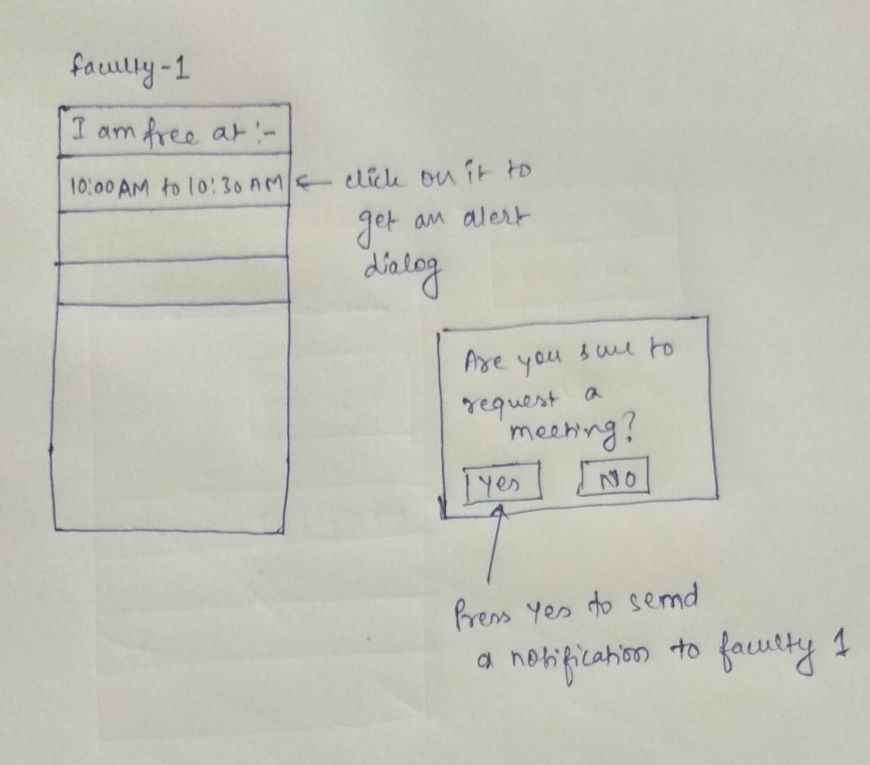 faculty-1
I am free at :-
10:00 AM to 10:30 AM
click on it to
get an alert
dialog
Are you sure to
request a
meeting?
Yes
NO
Press Yes to send
a notification to faculty 1